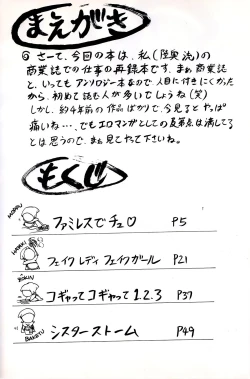 まえがき
◎さーて、今回の本は、私(陸奥
商業誌での仕事の再録本です。まぁ商業誌
と、いってもアンソロジー本なので人目に付きにくかった
から、初めて読む人が多いでしょうね(笑)
しかし、約4年前の作品ばかりで、今見るとやっぱ
痛いね…、でもエロマンガとしての及第点は満してる
とは思うので、まぁ見てやって下さいね。
もくじ
ファミレスでチュ♡ P5
フェイクレディフェイクガール P21
コギャってコギャって1.2.3 P37
シスターストーム P49